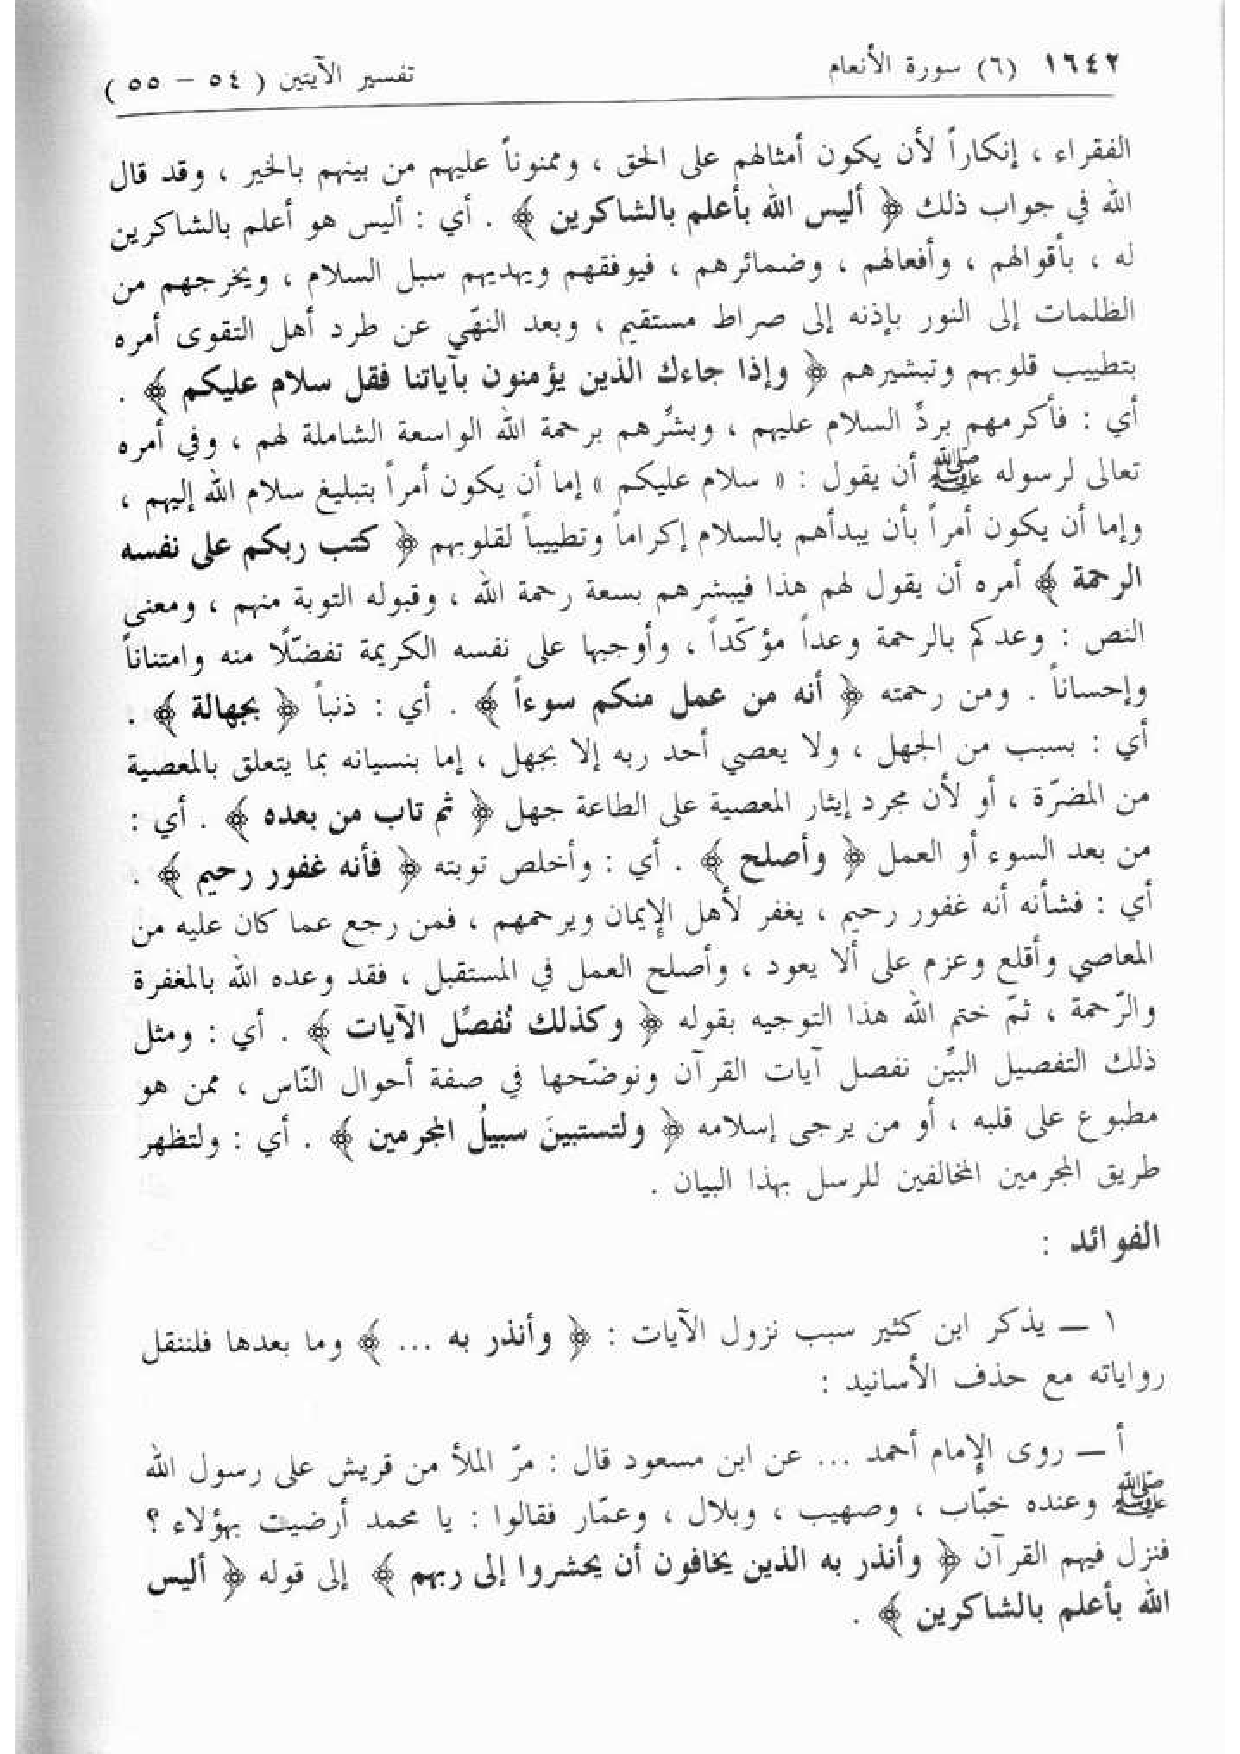 ١٦٤٢ (٦) سورة الأنعام تفسير الآيتين ( ٥٤ – ٥٥ )
الفقراء ، إنكاراً لأن يكون أمثالهم على الحق ، وممنوناً عليهم من بينهم بالخير ، وقد قال
الله في جواب ذلك ﴿ أليس الله بأعلم بالشاكرين ﴾ . أي : أليس هو أعلم بالشاكرين
له ، بأقوالهم ، وأفعالهم ، وضمائرهم ، فيوفقهم ويهديهم سبل السلام ، ويخرجهم من
الظلمات إلى النور بإذنه إلى صراط مستقيم ، وبعد النهّي عن طرد أهل التقوى أمره
بتطييب قلوبهم وتبشيرهم ﴿ وإذا جاءك الذين يؤمنون بآياتنا فقل سلام عليكم ﴾ .
أي : فأكرمهم بردِّ السلام عليهم ، وبشِّرهم برحمة الله الواسعة الشاملة لهم ، وفي أمره
تعالى لرسوله ﷺ أن يقول : « سلام عليكم » إما أن يكون أمراً بتبليغ سلام الله إليهم ،
وإما أن يكون أمراً بأن يبدأهم بالسلام إكراماً وتطييباً لقلوبهم ﴿ كتب ربكم على نفسه
الرحمة ﴾ أمره أن يقول لهم هذا فيبشرهم بسعة رحمة الله ، وقبوله التوبة منهم ، ومعنى
النص : وعدكم بالرحمة وعداً مؤكّداً ، وأوجبها على نفسه الكريمة تفضّلًا منه وامتناناً
وإحساناً . ومن رحمته ﴿ أنه من عمل منكم سوءاً ﴾ . أي : ذنباً ﴿ بجهالة ﴾ .
أي : بسبب من الجهل ، ولا يعصي أحد ربه إلا بجهل ، إما بنسيانه بما يتعلق بالمعصية
من المضرّة ، أو لأن مجرد إيثار المعصية على الطاعة جهل ﴿ ثم تاب من بعده ﴾ . أي :
من بعد السوء أو العمل ﴿ وأصلح ﴾ . أي : وأخلص توبته ﴿ فأنه غفور رحيم ﴾ .
أي : فشأنه أنه غفور رحيم ، يغفر لأهل الإيمان ويرحمهم ، فمن رجع عما كان عليه من
المعاصي وأقلع وعزم على ألا يعود ، وأصلح العمل في المستقبل ، فقد وعده الله بالمغفرة
والرّحمة ، ثمّ ختم الله هذا التوجيه بقوله ﴿ وكذلك نُفصِّل الآيات ﴾ . أي : ومثل
ذلك التفصيل البيِّن نفصل آيات القرآن ونوضّحها في صفة أحوال النّاس ، ممن هو
مطبوع على قلبه ، أو من يرجى إسلامه ﴿ ولتستبينَ سبيلُ المجرمين ﴾ . أي : ولتظهر
طريق المجرمين المخالفين للرسل بهذا البيان .
الفوائد :
١ ــ يذكر ابن كثير سبب نزول الآيات : ﴿ وأنذر به ... ﴾ وما بعدها فلننقل
رواياته مع حذف الأسانيد :
أ ــ روى الإمام أحمد ... عن ابن مسعود قال : مرّ الملأ من قريش على رسول الله
ﷺ وعنده خبّاب ، وصهيب ، وبلال ، وعمّار فقالوا : يا محمد أرضيت بهؤلاء ؟
فنزل فيهم القرآن ﴿ وأنذر به الذين يخافون أن يحشروا إلى ربهم ﴾ إلى قوله ﴿ أليس
الله بأعلم بالشاكرين ﴾ .